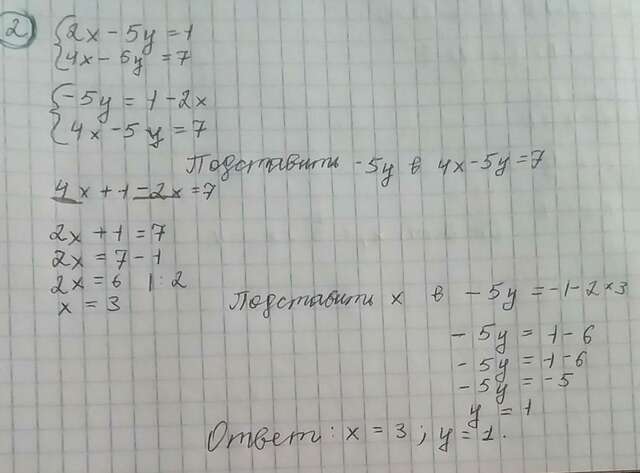 2
2x - 5y = 1
4x - 5y = 7
-5y = 1 - 2x
4x - 5y = 7
Подставить -5y в 4x-5y=7
4x + 1 - 2x = 7
2x + 1 = 7
2x = 7 - 1
2x = 6 |:2
x = 3
Подставить x в -5y = -1-2×3
-5y = 1-6
-5y = 1-6
-5y = -5
y = 1
Ответ: x = 3; y = 1.